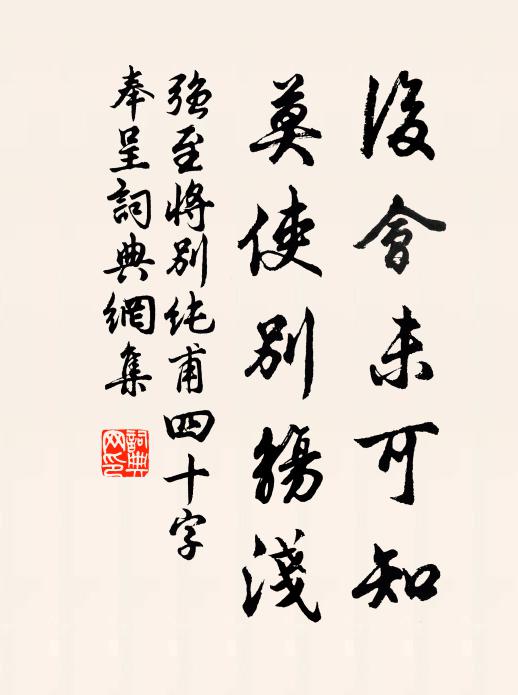 後會未可知
莫使別觴淺
強至將別純甫四十字
奉呈詞典網集
詞典
网印